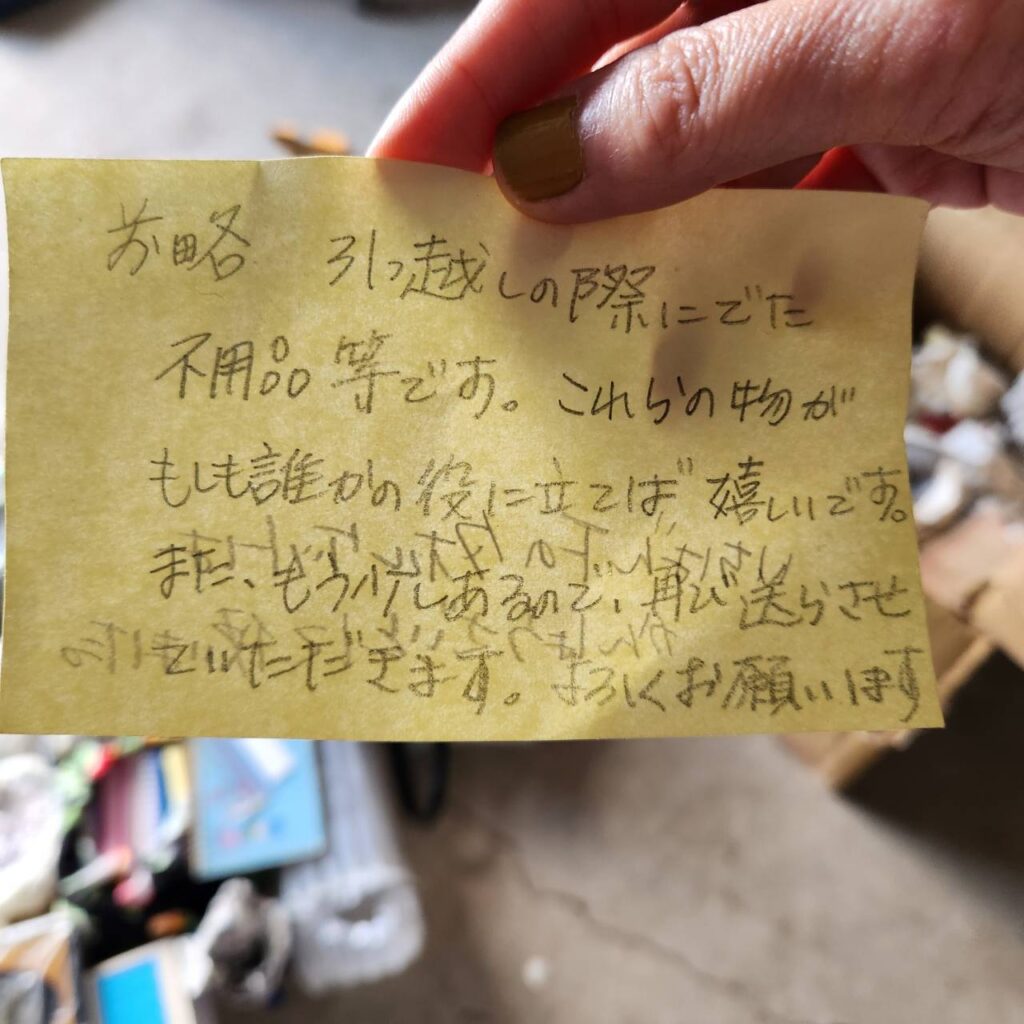 前略 引っ越しの際にでた
不用品等です。これらの物が
もしも誰かの役に立てば嬉しいです。
また、もう少しあるので、再び送らさせ
ていただきます。よろしくお願いします